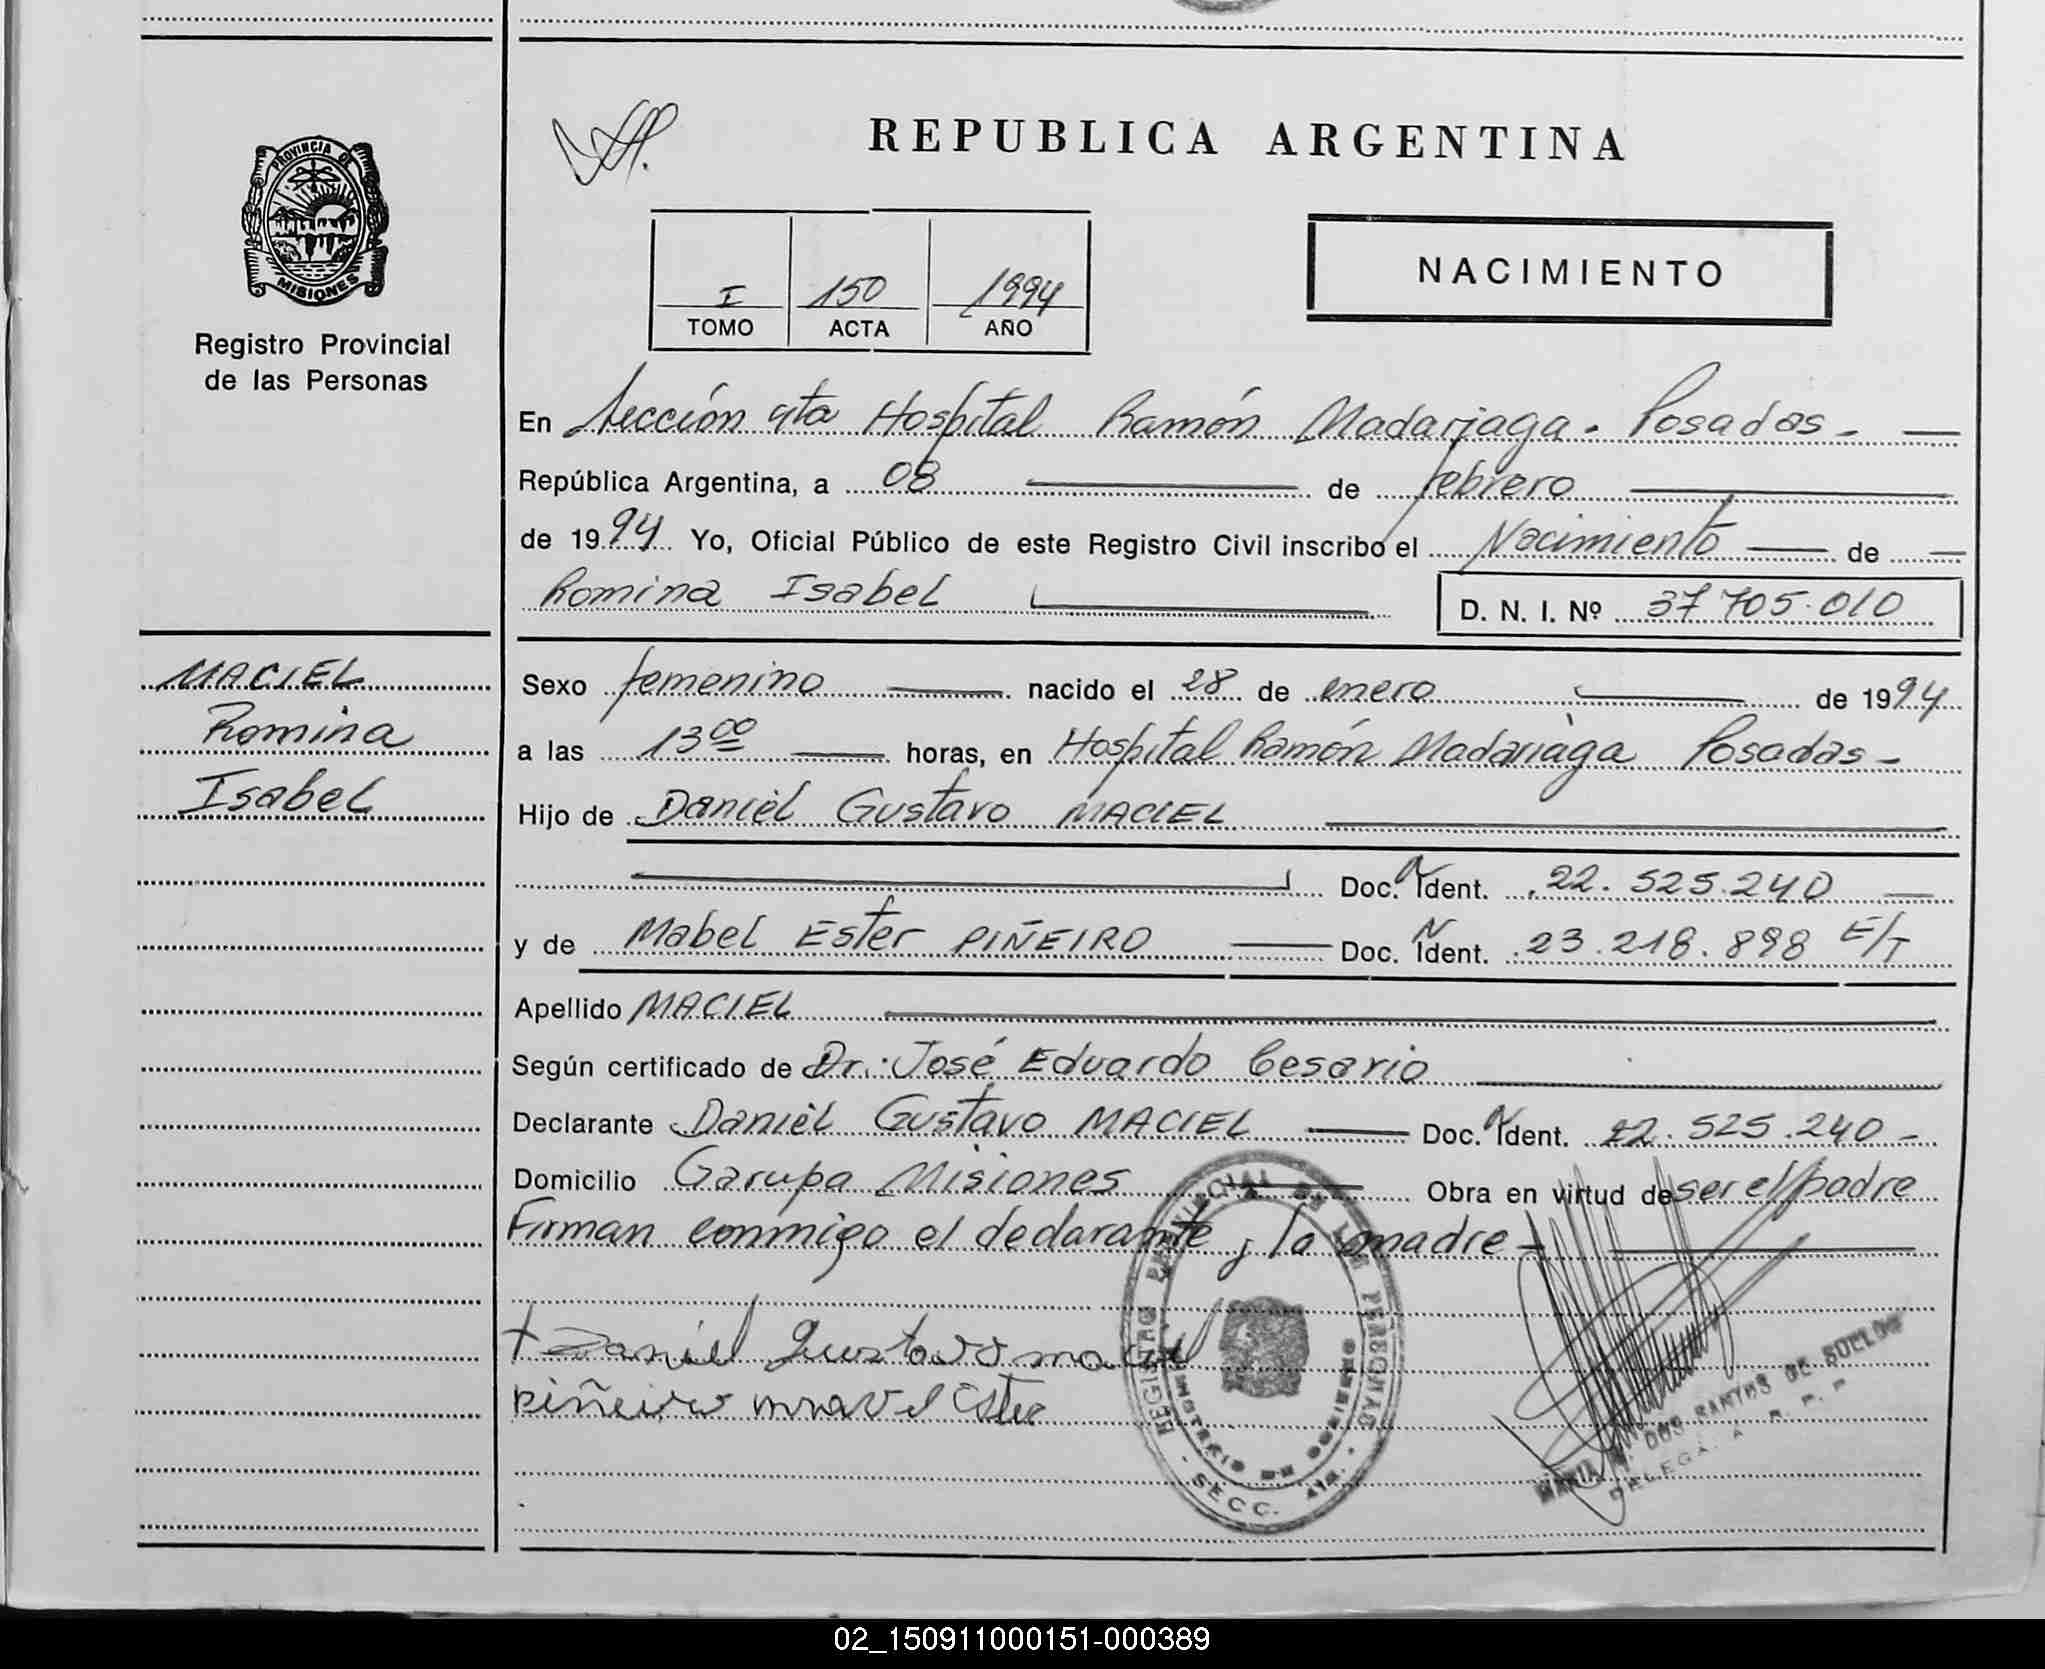 PROVINCIA DE
MISIONES
Registro Provincial
de las Personas
MACIEL
Romina
Isabel
REPUBLICA ARGENTINA
I 150 1994
TOMO ACTA AÑO
NACIMIENTO
En Sección 4ta Hospital Ramón Madariaga. Posadas -
República Argentina, a 08 de febrero
de 1994 Yo, Oficial Público de este Registro Civil inscribo el Nacimiento de
Romina Isabel D. N. I. Nº 37 705.010
Sexo femenino nacido el 28 de enero de 1994
a las 13 00 horas, en Hospital Ramón Madariaga Posadas -
Hijo de Daniel Gustavo MACIEL
Doc. N Ident. 22.525.240
y de Mabel Ester PIÑEIRO Doc. N Ident. 23.218.898 E/T
Apellido MACIEL
Según certificado de Dr. José Eduardo Cesario
Declarante Daniel Gustavo MACIEL Doc. N Ident. 22.525.240 -
Domicilio Garupa Misiones Obra en virtud de ser el padre
Firman conmigo el declarante y la madre -
Daniel Gustavo maciel
piñeiro mavel Ester
REGISTRO PROVINCIAL DE LAS PERSONAS
MINISTERIO DE GOBIERNO
SECC. 4ta.
MARIA DOS SANTOS DE
02_150911000151-000389